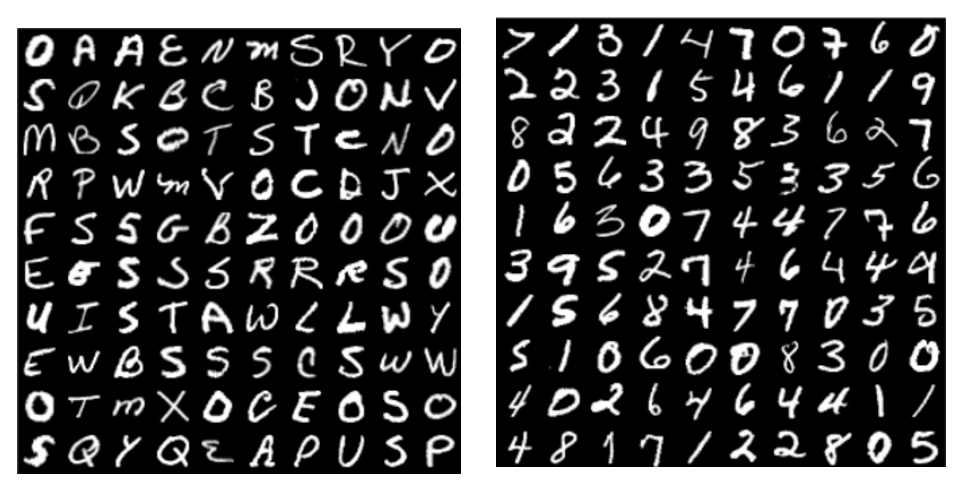 O A A E N m S R Y O
S Q K B C B J O N V
M B S O T S T C N O
R P W m V O C D J X
F S S G B Z O O O U
E S S S R R R S O
U I S T A W L L W Y
E W B S S S C S W W
O T m X O C E O S O
S Q Y Q E A P U S P
7 1 3 1 4 7 0 7 6 0
2 2 3 1 5 4 6 1 1 9
8 2 2 4 9 8 3 6 2 7
0 5 6 3 3 5 3 3 5 6
1 6 3 0 7 4 4 7 7 6
3 9 5 2 7 4 6 4 4 9
1 5 6 8 4 7 7 0 3 5
5 1 0 6 0 0 8 3 0 0
4 0 2 6 4 6 4 4 1 1
4 8 1 7 1 2 2 8 0 5